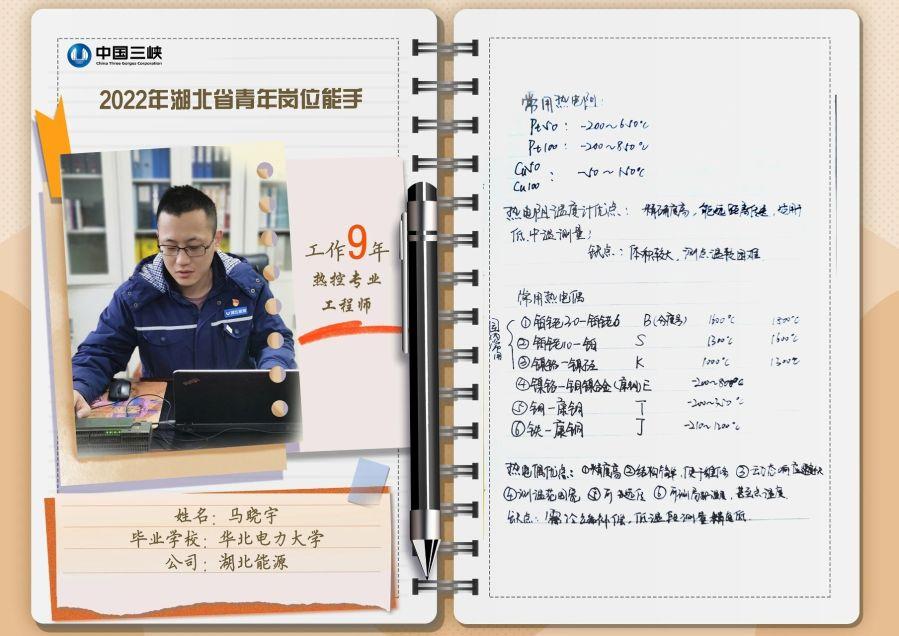 中国三峡
China Three Gorges Corporation
2022年湖北省青年岗位能手
工作9年
热控专业
工程师
姓名：马晓宇
毕业学校：华北电力大学
公司：湖北能源
常用热电阻：
Pt50： -200～650℃
Pt100： -200～850℃
Cu50
Cu100 ： -50～150℃
热电阻温度计优点： 精确度高，能远距离传送，适用
低、中温测量；
缺点：体积较大，测点温较困难
常用热电偶
①铂铑30-铂铑6 B(分度号) 1600℃ 1800℃
②铂铑10-铂 S 1300℃ 1600℃
③镍铬-镍硅 K 1000℃ 1300℃
④镍铬-铜镍合金(康铜) E -200～800℃
⑤铜-康铜 T -200～350℃
⑥铁-康铜 J -210～1200℃
热电偶优点：①精度高 ②结构简单，便于维修 ③动态响应
④测温范围宽 ⑤可远 ⑥可测局部温度，甚至点温度
缺点：需冷端补偿，低温段测量精度低